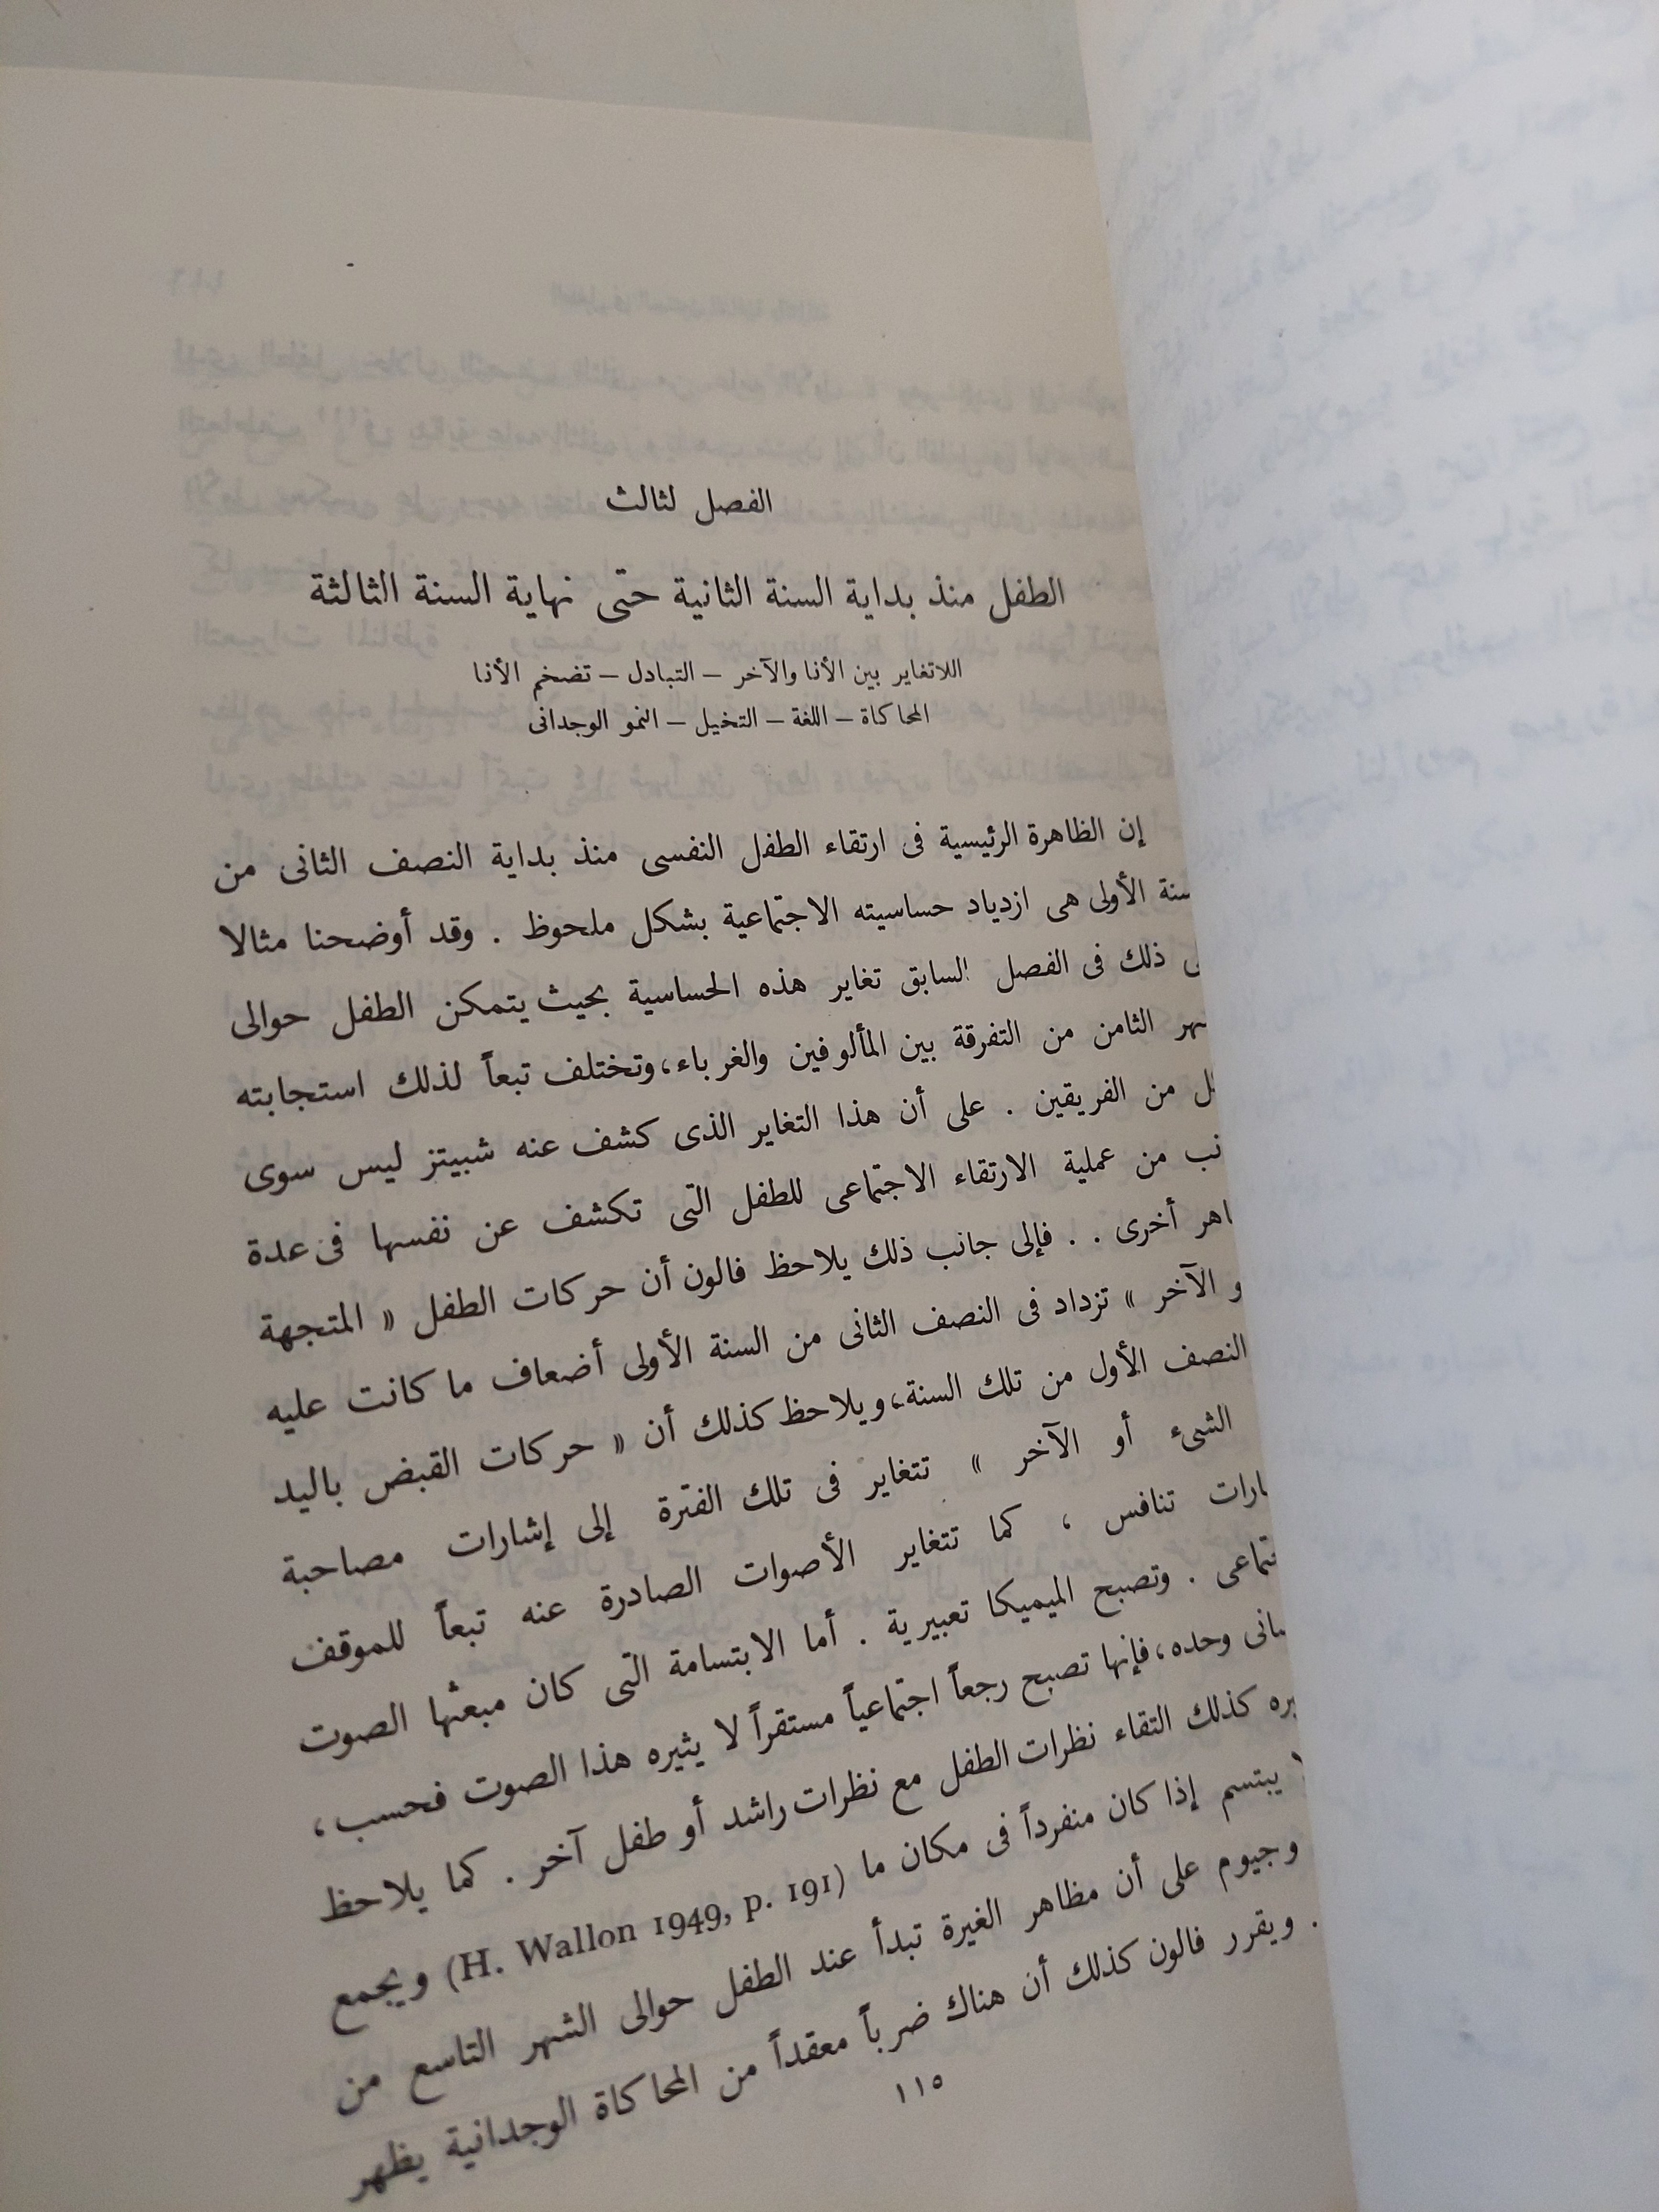 الفصل لثالث
الطفل منذ بداية السنة الثانية حتى نهاية السنة الثالثة
اللاتغاير بين الأنا والآخر – التبادل – تضخم الأنا
المحاكاة – اللغة – التخيل – النمو الوجدانى
إن الظاهرة الرئيسية فى ارتقاء الطفل النفسى منذ بداية النصف الثانى من
سنة الأولى هى ازدياد حساسيته الاجتماعية بشكل ملحوظ . وقد أوضحنا مثالا
ذلك فى الفصل السابق تغاير هذه الحساسية بحيث يتمكن الطفل حوالى
هر الثامن من التفرقة بين المألوفين والغرباء، وتختلف تبعاً لذلك استجابته
ل من الفريقين . على أن هذا التغاير الذى كشف عنه شبيتز ليس سوى
نب من عملية الارتقاء الاجتماعى للطفل التى تكشف عن نفسها فى عدة
اهر أخرى . . فإلى جانب ذلك يلاحظ فالون أن حركات الطفل « المتجهة
و الآخر » تزداد فى النصف الثانى من السنة الأولى أضعاف ما كانت عليه
النصف الأول من تلك السنة، ويلاحظ كذلك أن « حركات القبض باليد
الشىء أو الآخر » تتغاير فى تلك الفترة إلى إشارات مصاحبة
ارات تنافس ، كما تتغاير الأصوات الصادرة عنه تبعاً للموقف
تماعى . وتصبح الميميكا تعبيرية . أما الابتسامة التى كان مبعثها الصوت
سانى وحده، فإنها تصبح رجعاً اجتماعياً مستقراً لا يثيره هذا الصوت فحسب ،
يره كذلك التقاء نظرات الطفل مع نظرات راشد أو طفل آخر . كما يلاحظ
يبتسم إذا كان منفرداً فى مكان ما (H. Wallon 1949, p. 191) ويجمع
وجيوم على أن مظاهر الغيرة تبدأ عند الطفل حوالى الشهر التاسع من
. ويقرر فالون كذلك أن هناك ضرباً معقداً من المحاكاة الوجدانية يظهر
١١٥